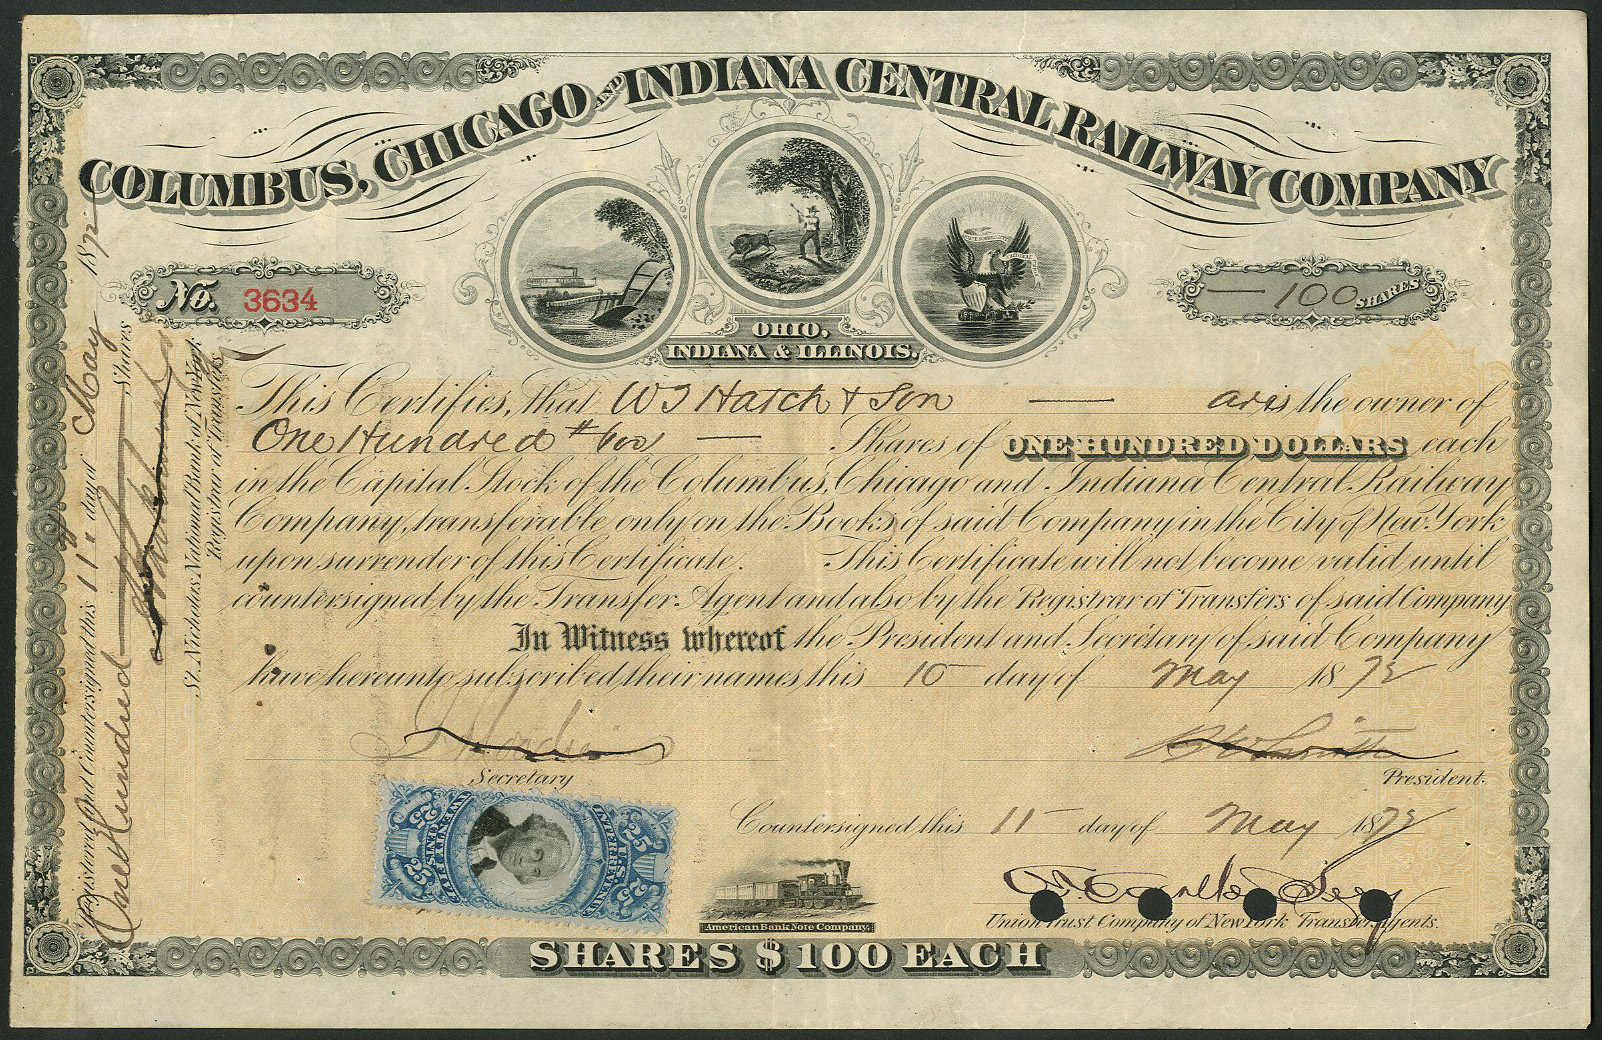 COLUMBUS, CHICAGO AND INDIANA CENTRAL RAILWAY COMPANY
No. 3634
100 SHARES
OHIO,
INDIANA & ILLINOIS.
This Certifies, that W J Hatch & Son — are is the owner of
One Hundred # 100 — Shares of ONE HUNDRED DOLLARS each
in the Capital Stock of the Columbus, Chicago and Indiana Central Railway
Company, transferable only on the Books of said Company in the City of New York
upon surrender of this Certificate. This Certificate will not become valid until
countersigned by the Transfer Agent and also by the Registrar of Transfers of said Company.
In Witness whereof the President and Secretary of said Company
have hereunto subscribed their names this 10 day of May 1872
Secretary
President.
Countersigned this 11 day of May 1872
Union Trust Company of New York Transfer Agents.
American Bank Note Company.
SHARES $100 EACH
Registered And Countersigned this 11 day of May 1872
One Hundred Shares
St. Nicholas National Bank of New York
Registrar of Transfers
U.S.
INTER. REVENUE
TWENTY FIVE
CENTS
25
25
25
25